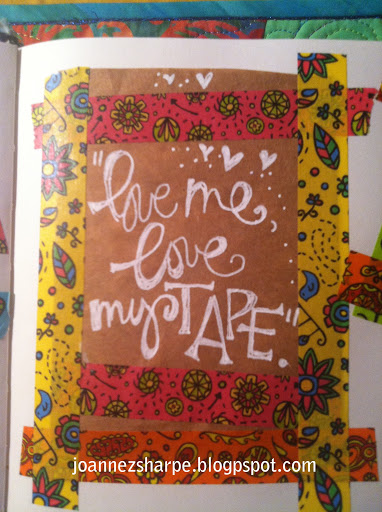 "love me,
love
my TAPE."
joannezsharpe.blogspot.com